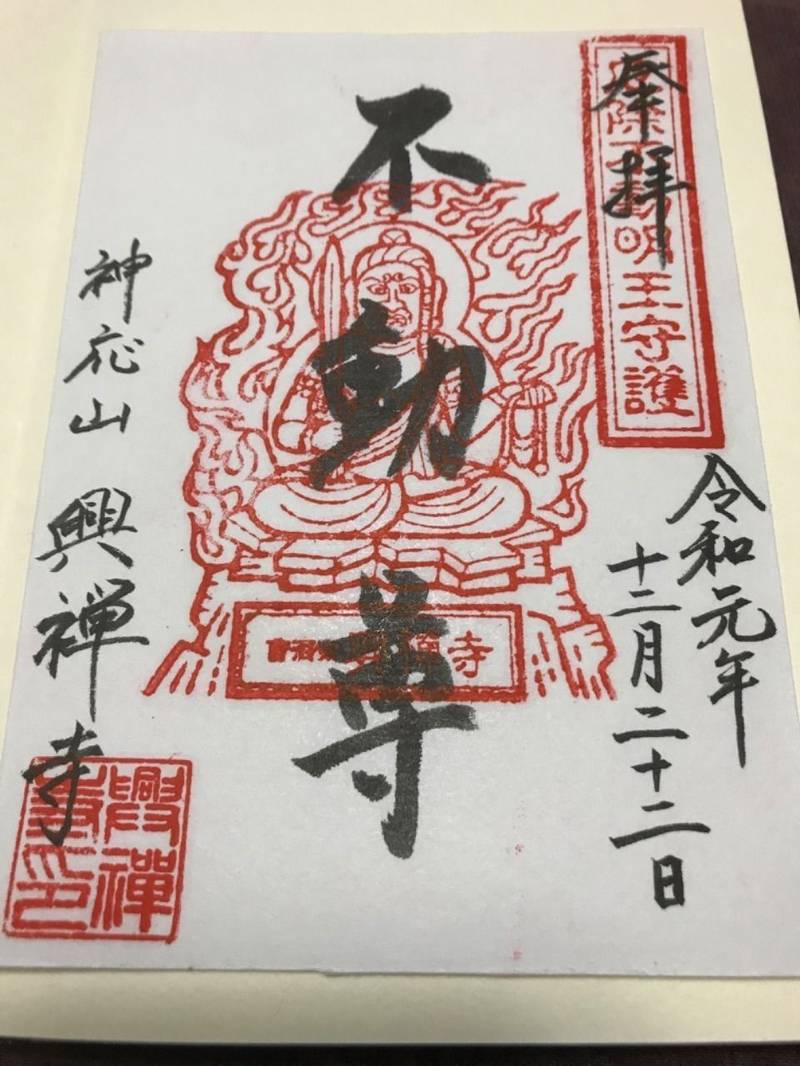 奉拝
除不動明王守護
令和元年
十二月二十二日
不動尊
寺
神応山 興禅寺
興禅寺印